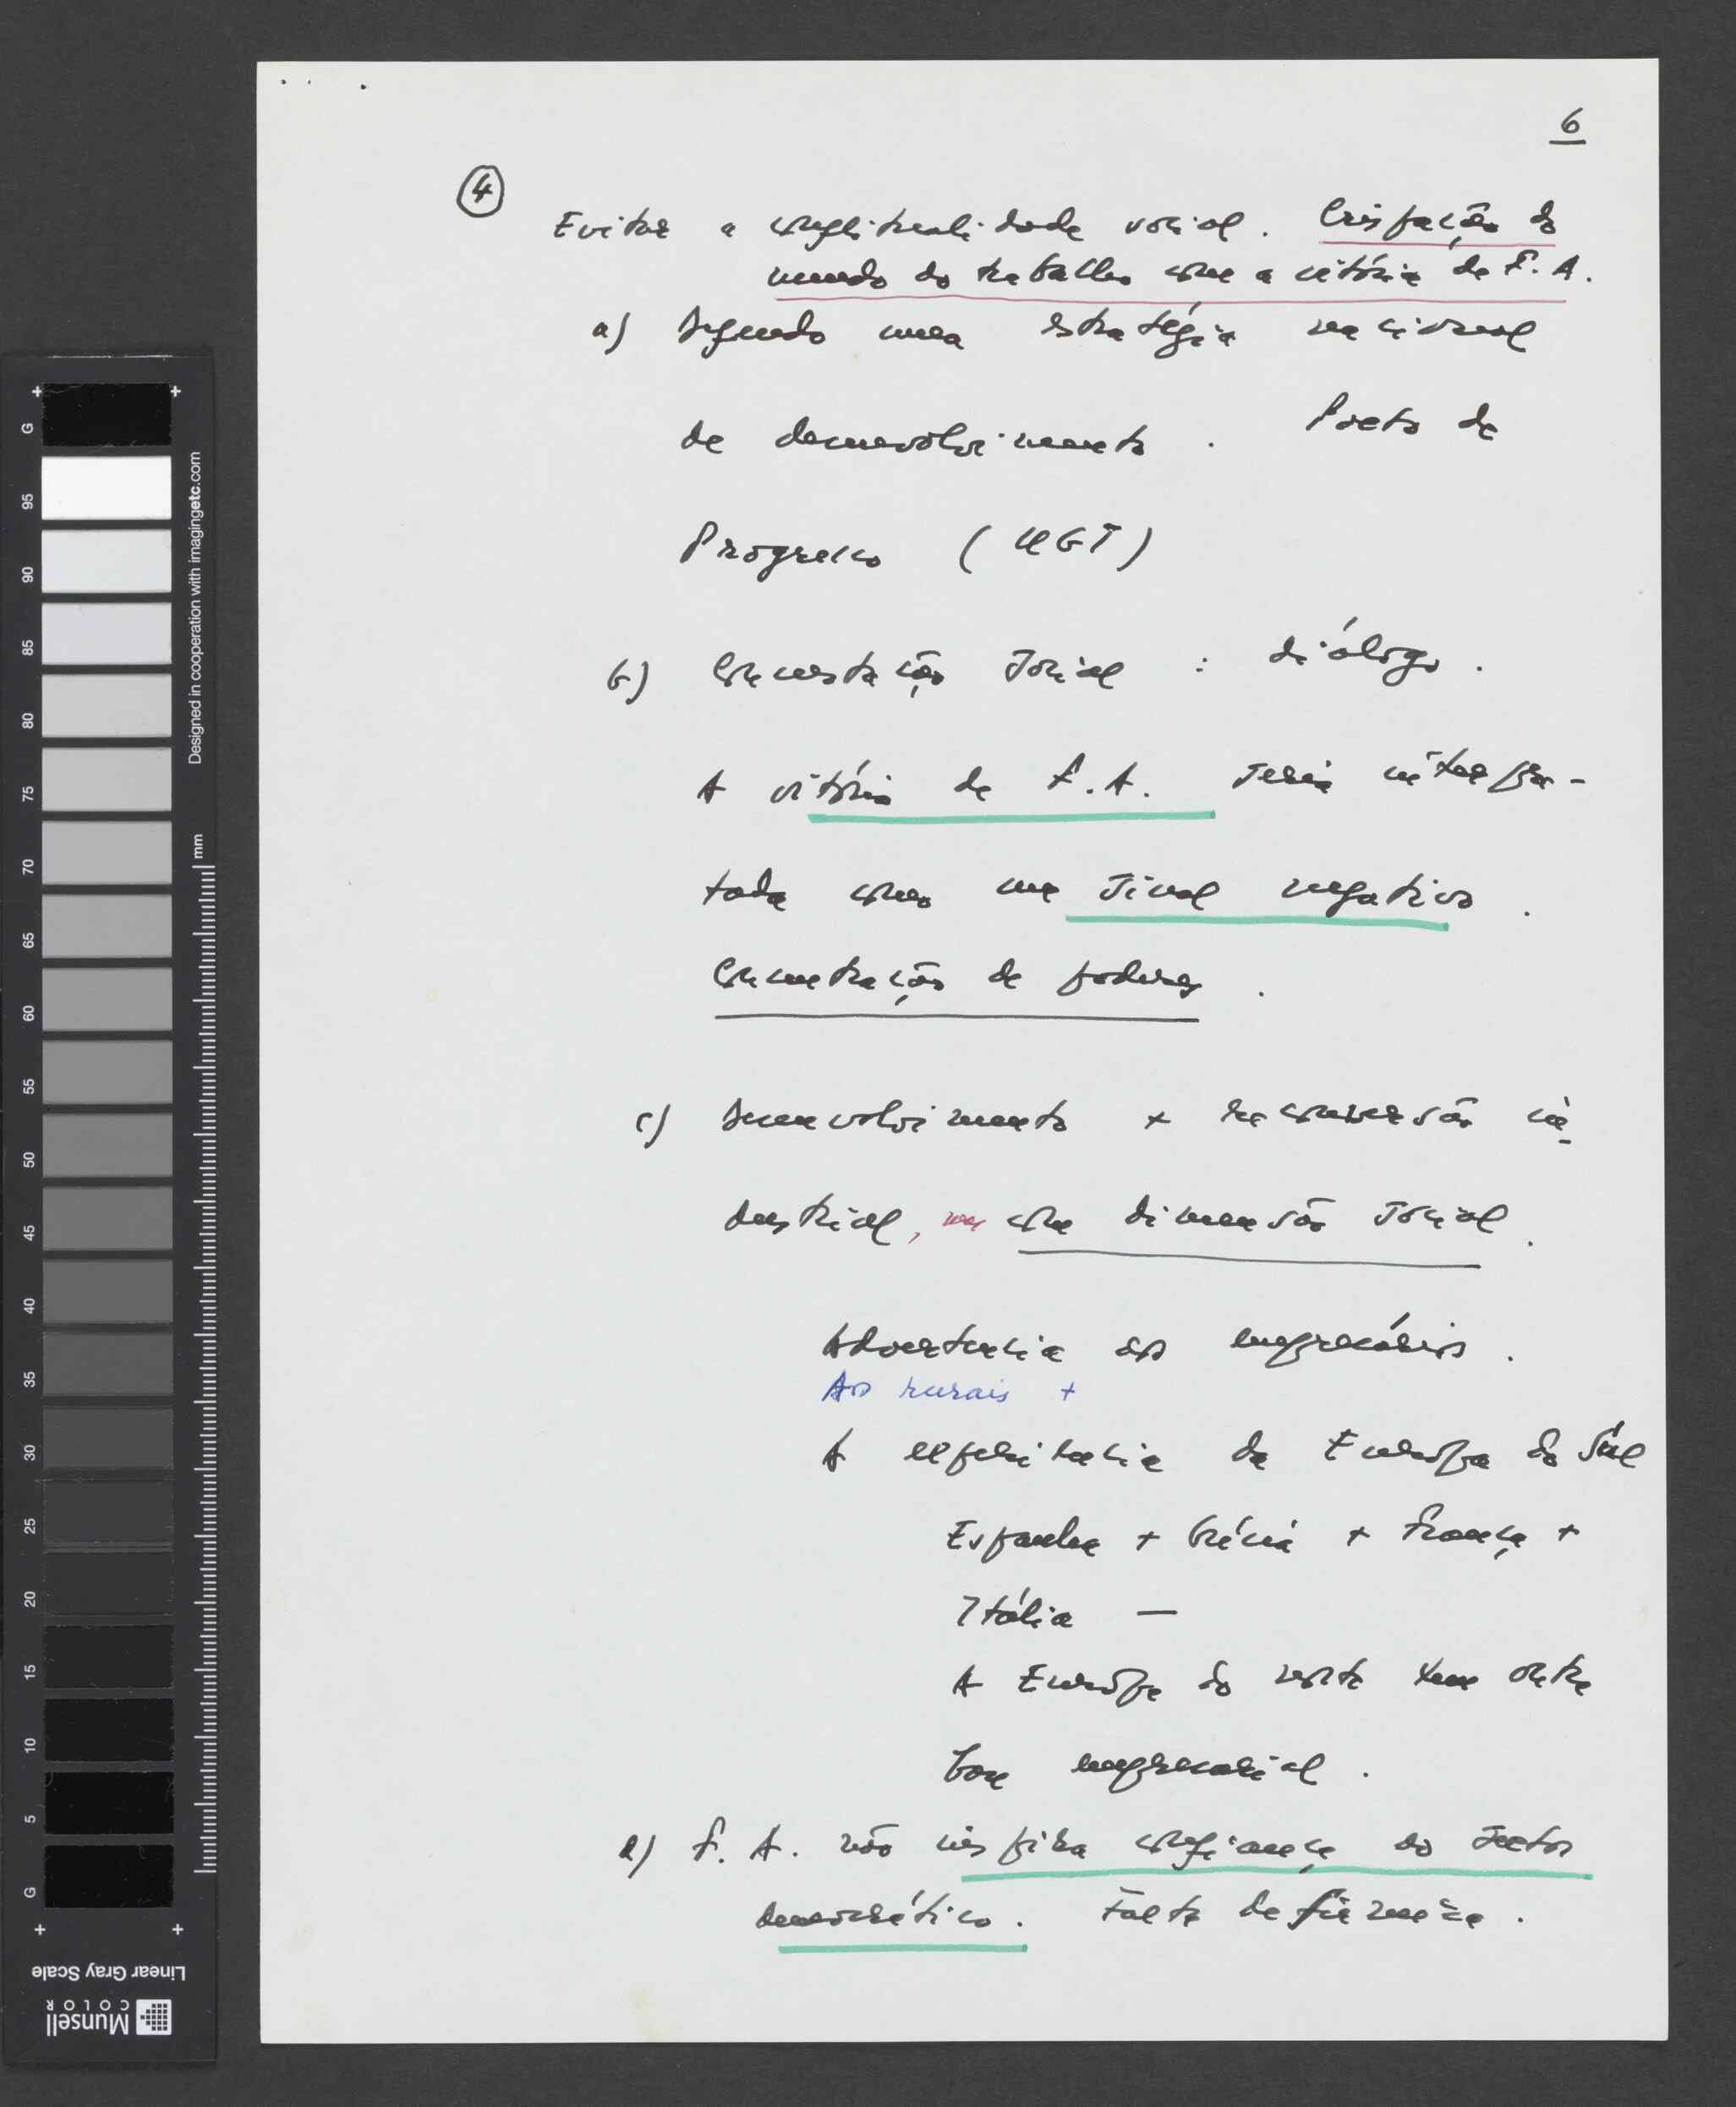 6
4
Evitar a conflitualidade social. Crispação do
mundo do trabalho com a vitória de F. A.
a) Segundo uma estratégia nacional
de desenvolvimento. Pacto de
Progresso (UGT)
b) Concertação Social: diálogo.
A vitória de F. A. seria interpre-
tada como um sinal negativo.
Concentração de poderes.
c) Desenvolvimento + reconversão in-
dustrial, mas com dimensão social.
Advertência aos empresários.
Aos rurais +
A experiência da Europa do Sul
Espanha + Grécia + França +
Itália —
A Europa do norte tem outra
base empresarial.
d) F. A. não inspira confiança ao sector
democrático. Falta de firmeza.
G
95
90
85
80
75
70
65
60
55
50
45
40
35
30
25
20
15
10
5
G
Designed in cooperation with imagingetc.com
mm
Linear Gray Scale
Munsell
COLOR